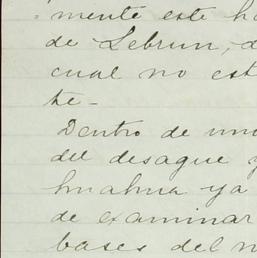 mente este ha
de Lebrun, d
cual no est
te-
Dentro de uno
del desague y
huahua ya
de examinar
bases del n